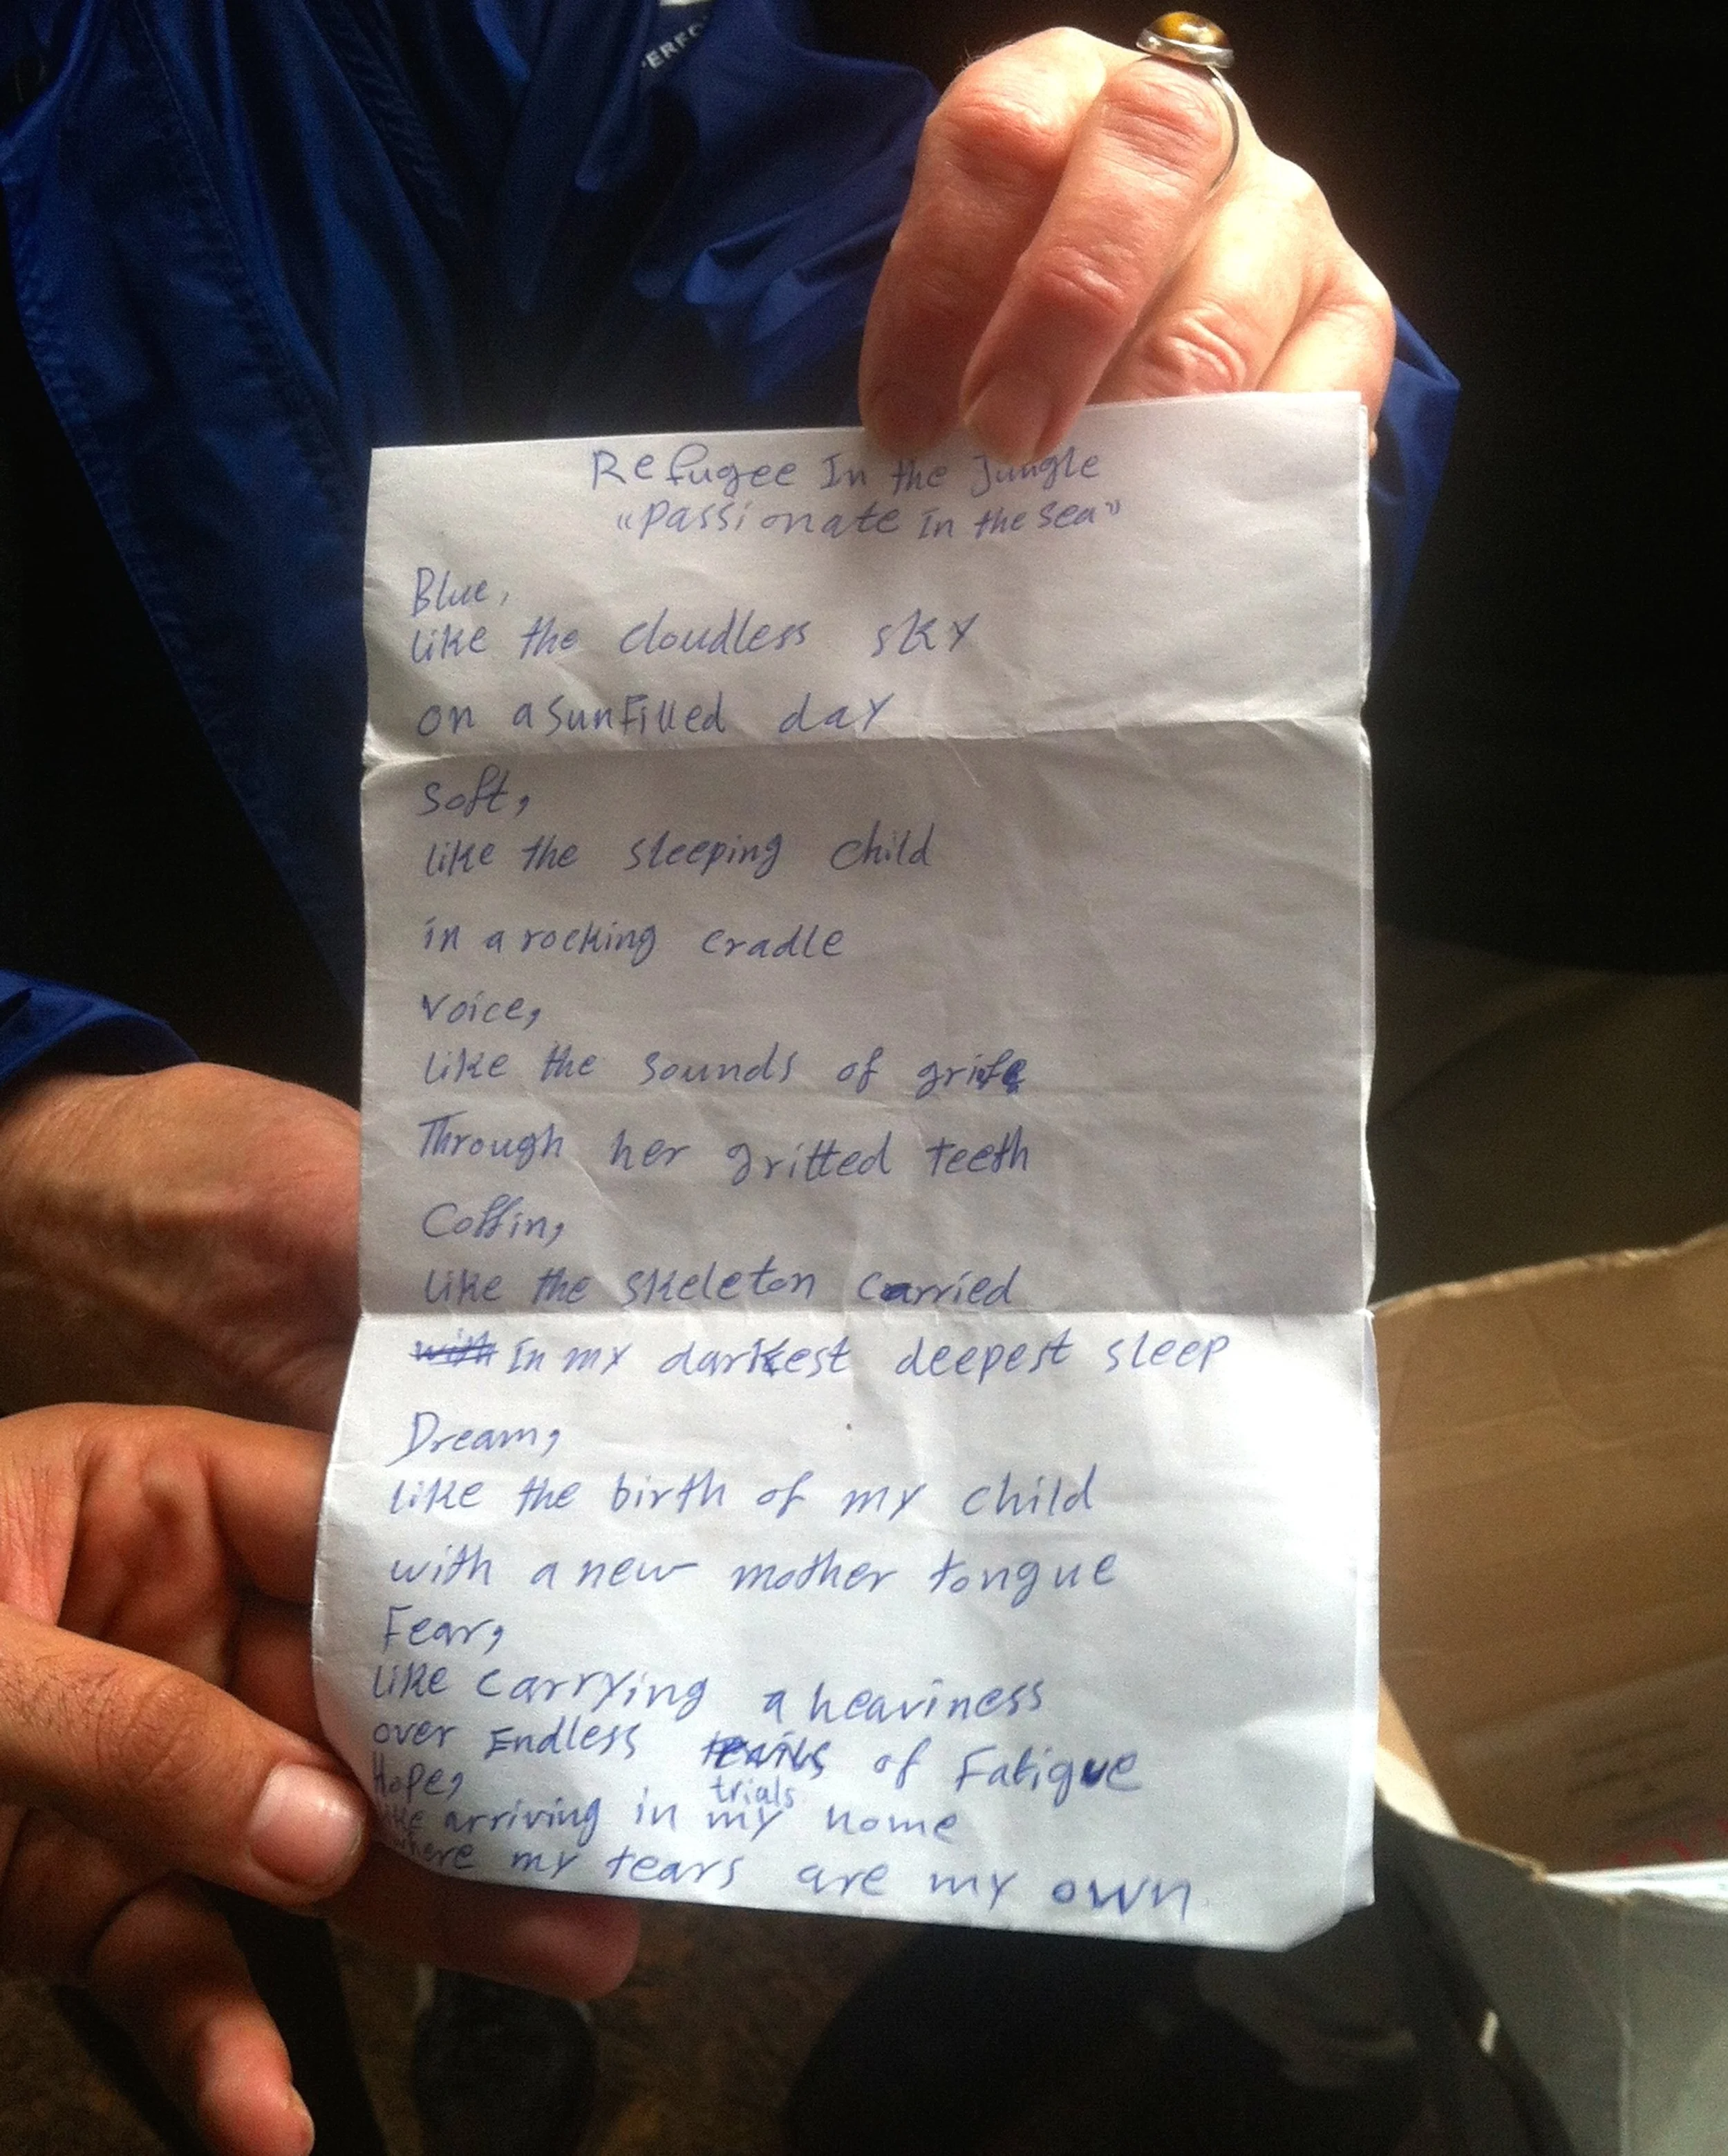 Refugee In the Jungle
"Passionate In the sea"
Blue,
like the cloudless sky
on a sunfilled day
soft,
like the sleeping child
in a rocking cradle
voice,
like the sounds of grife
Through her gritted teeth
Coffin,
like the skeleton carried
with In my darkest deepest sleep
Dream,
like the birth of my child
with a new mother tongue
Fear,
like carrying a heaviness
over Endless of Fatigue
trials
Hope,
like arriving in my home
where my tears are my own